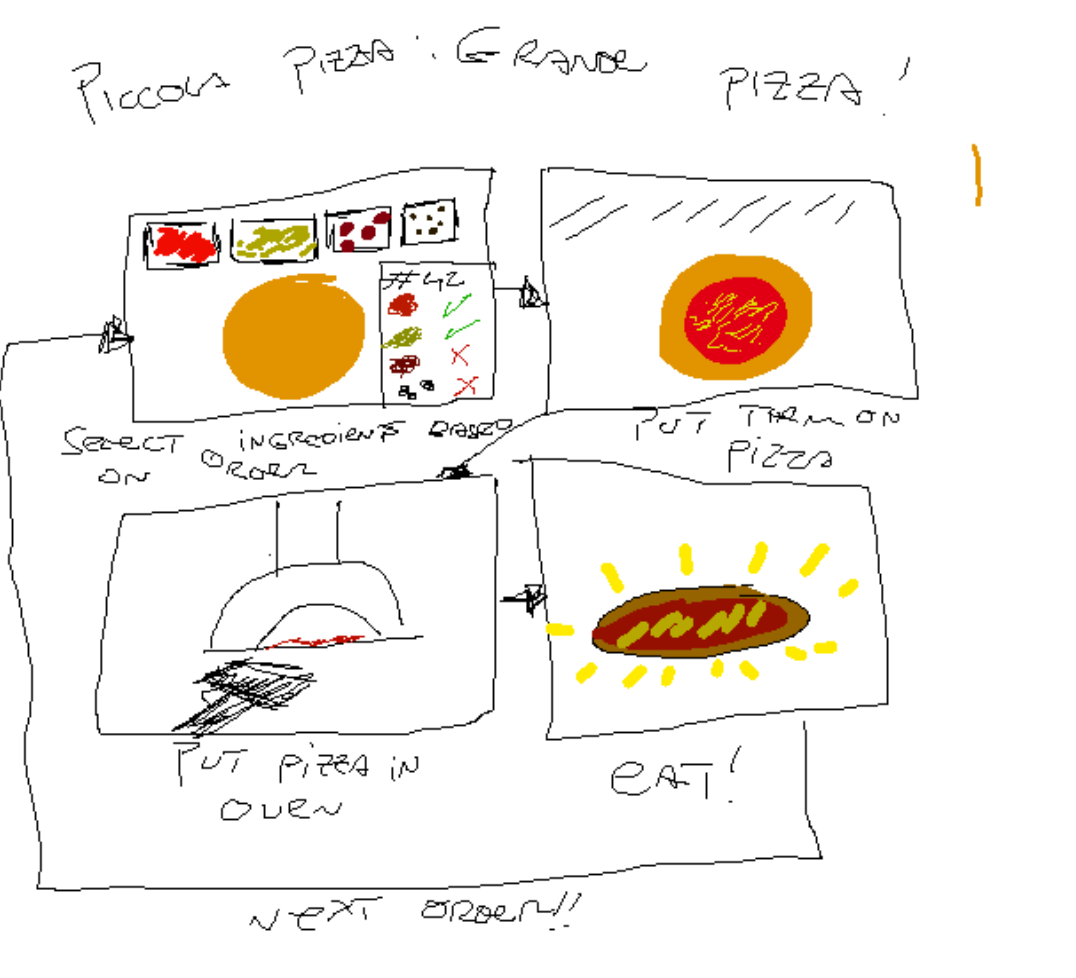 PICCOLA PIZZA: GRANDE PIZZA!
#42
SELECT INGREDIENTS BASED
ON ORDER
PUT THEM ON
PIZZA
PUT PIZZA IN
OVEN
EAT!
NEXT ORDER!!